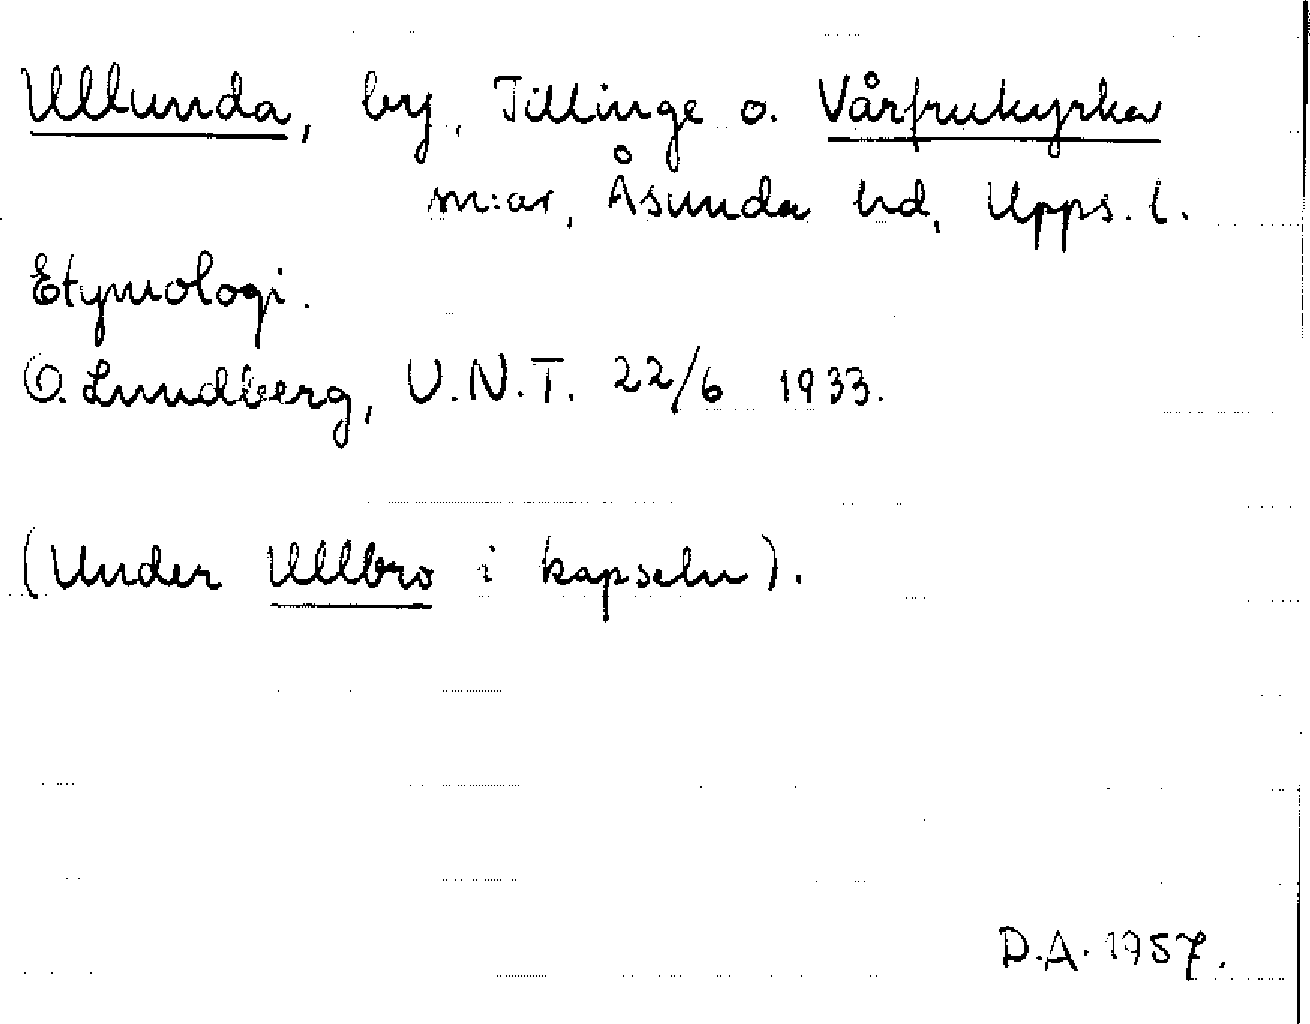 Ullunda, by, Tillinge o. Vårfrukyrka
sn:ar, Åsunda hd, Upps. l.
Etymologi.
O. Lundberg, U.N.T. 22/6 1933.
(Under Ullbro i kapseln).
D.A. 1957.